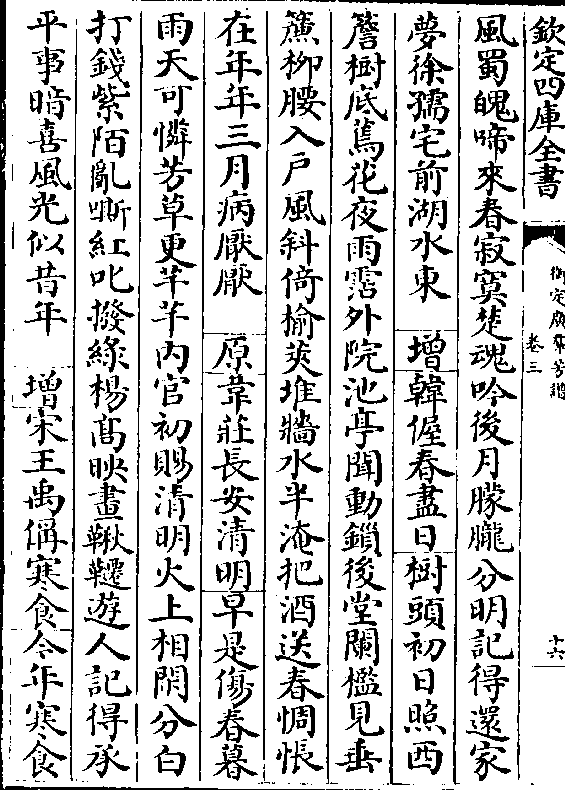 欽定四庫全書
御定廣羣芳譜
卷三
十六
風蜀魄啼來春寂寞楚魂吟後月朦朧分明記得還家
夢徐孺宅前湖水東　增韓偓春盡日樹頭初日照西
簷樹底蔫花夜雨霑外院池亭聞動鎖後堂闌檻見垂
簾柳腰入戶風斜倚榆莢堆牆水半淹把酒送春惆悵
在年年三月病厭厭　原韋莊長安清明早是傷春暮
雨天可憐芳草更芊芊內官初賜清明火上相閑分白
打錢紫陌亂嘶紅叱撥綠楊高映畫鞦韆遊人記得承
平事暗喜風光似昔年　增宋王禹偁寒食今年寒食